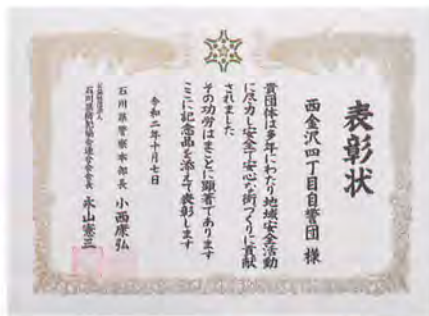 表彰状
西金沢四丁目自警団 様
貴団体は多年にわたり地域安全活動
に尽力し安全で安心な街づくりに貢献
されました
その功労はまことに顕著であります
ここに記念品を添えて表彰します
令和二年十月七日
石川県警察本部長 小西康弘
公益社団法人
石川県防犯協会連合会会長 永山憲三